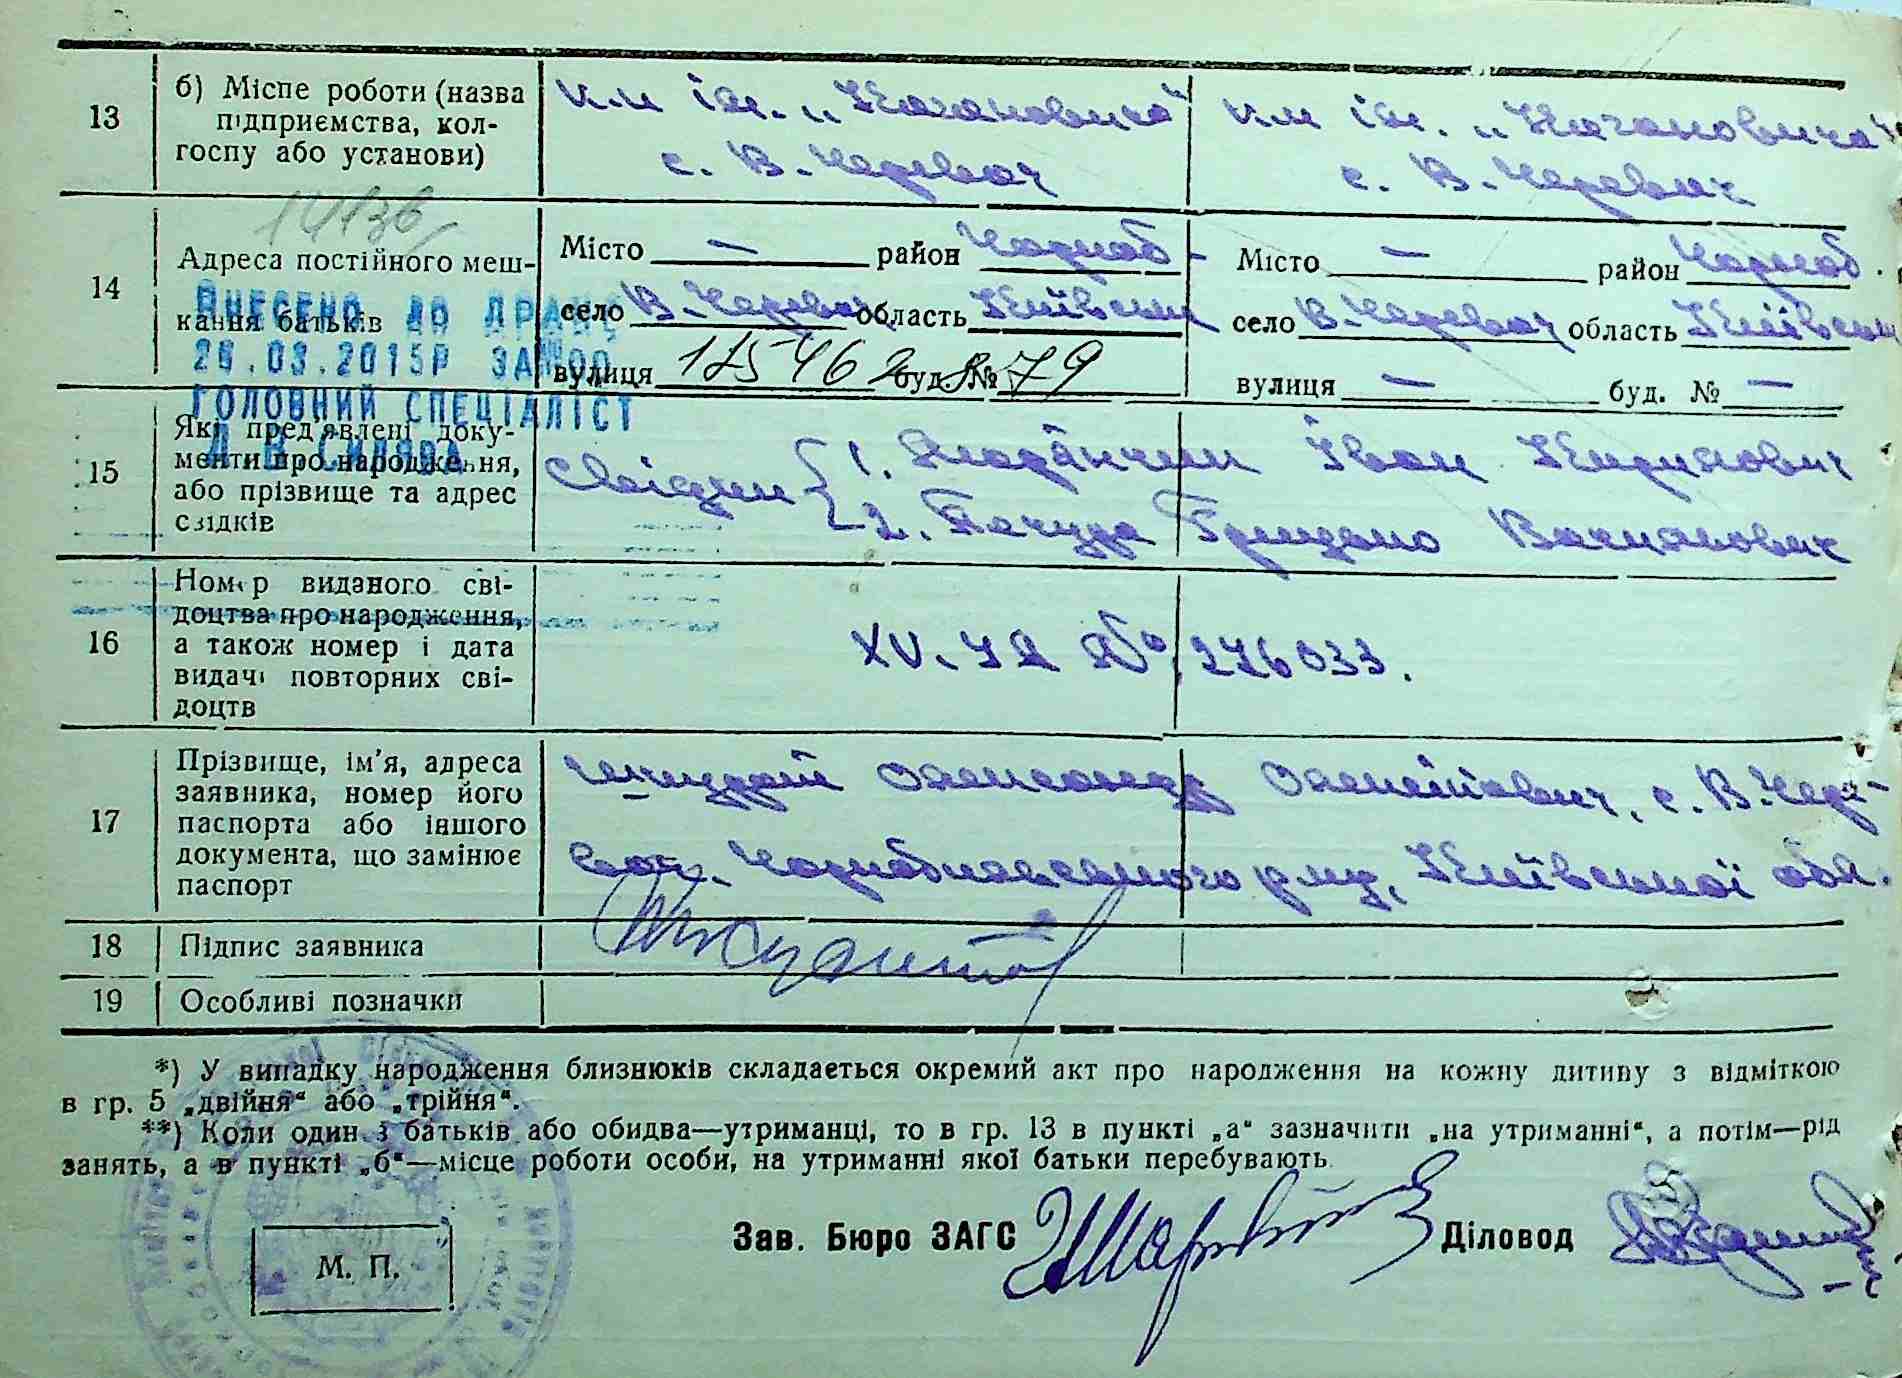 13
б) Місце роботи (назва
підприємства, кол-
госпу або установи)
к-п ім. „Кагановича"
с. В. Черевач
к-п ім. „Кагановича"
с. В. Черевач
14136
14
Адреса постійного меш-
кання батьків
Місто — район Чорноб-
село В. Черевач область Київська
вулиця буд. №
1754628879
Місто — район Чорноб.
село В. Черевач область Київськ
вулиця — буд. № —
ВНЕСЕНО ДО ДРАЦС
26.03.2015Р ЗА №00
ГОЛОВНИЙ СПЕЦІАЛІСТ
15
Які пред'явлені доку-
менти про народження,
або прізвище та адрес
свідків
Свідки
1. Іван Кирилович
2. Пачура Грицько
16
Номер виданого сві-
доцтва про народження,
а також номер і дата
видачі повторних сві-
доцтв
XV-УЯ № 276033.
17
Прізвище, ім'я, адреса
заявника, номер його
паспорта або іншого
документа, що замінює
паспорт
Шкурат Олександр Олексійович, с. В. Чере-
вач, Чорнобильського р-ну, Київської обл.
18
Підпис заявника
19
Особливі позначки
*) У випадку народження близнюків складається окремий акт про народження на кожну дитину з відміткою
в гр. 5 „двійня“ або „трійня“.
**) Коли один з батьків або обидва—утриманці, то в гр. 13 в пункті „а“ зазначити „на утриманні“, а потім—рід
занять, а в пункті „б“—місце роботи особи, на утриманні якої батьки перебувають.
Зав. Бюро ЗАГС
Діловод
М. П.